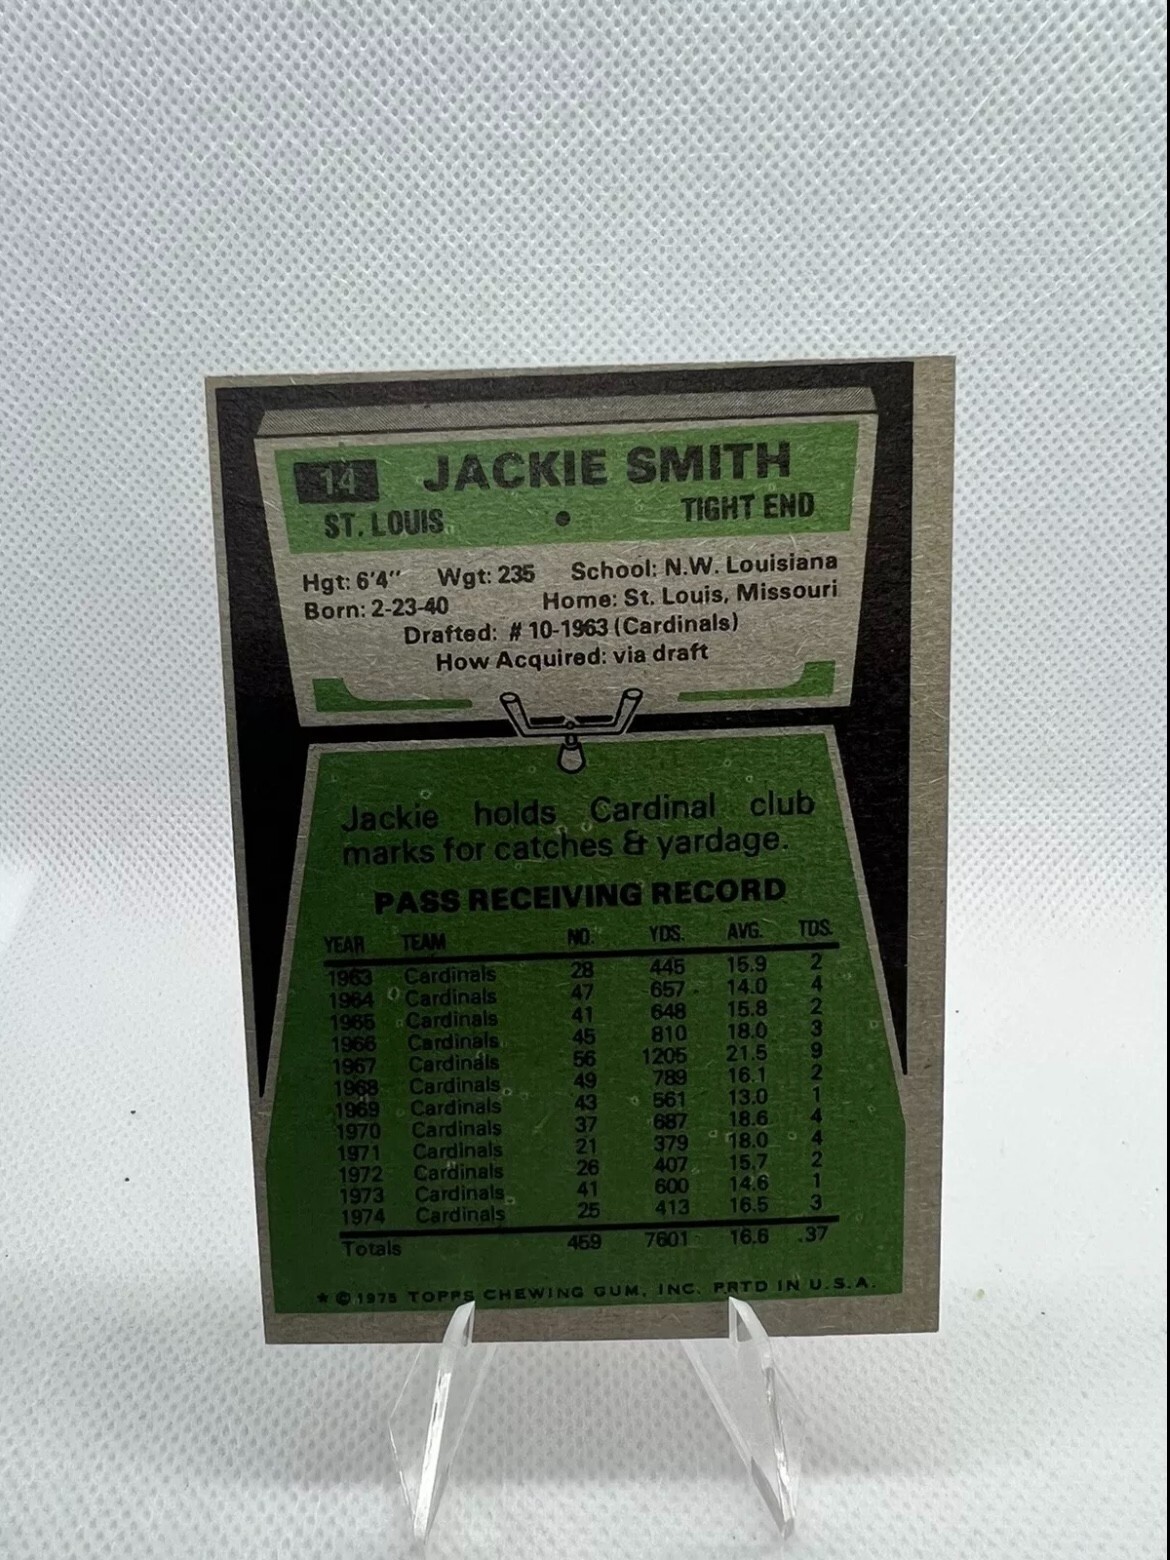 14 JACKIE SMITH
ST. LOUIS • TIGHT END
Hgt: 6'4" Wgt: 235 School: N.W. Louisiana
Born: 2-23-40 Home: St. Louis, Missouri
Drafted: # 10-1963 (Cardinals)
How Acquired: via draft
Jackie holds Cardinal club
marks for catches & yardage.
PASS RECEIVING RECORD
YEAR TEAM NO. YDS. AVG. TDS.
1963 Cardinals 28 445 15.9 2
1964 Cardinals 47 657 14.0 4
1965 Cardinals 41 648 15.8 2
1966 Cardinals 45 810 18.0 3
1967 Cardinals 56 1205 21.5 9
1968 Cardinals 49 789 16.1 2
1969 Cardinals 43 561 13.0 1
1970 Cardinals 37 687 18.6 4
1971 Cardinals 21 379 18.0 4
1972 Cardinals 26 407 15.7 2
1973 Cardinals 41 600 14.6 1
1974 Cardinals 25 413 16.5 3
Totals 459 7601 16.6 .37
* © 1975 TOPPS CHEWING GUM, INC. PRTD IN U.S.A.